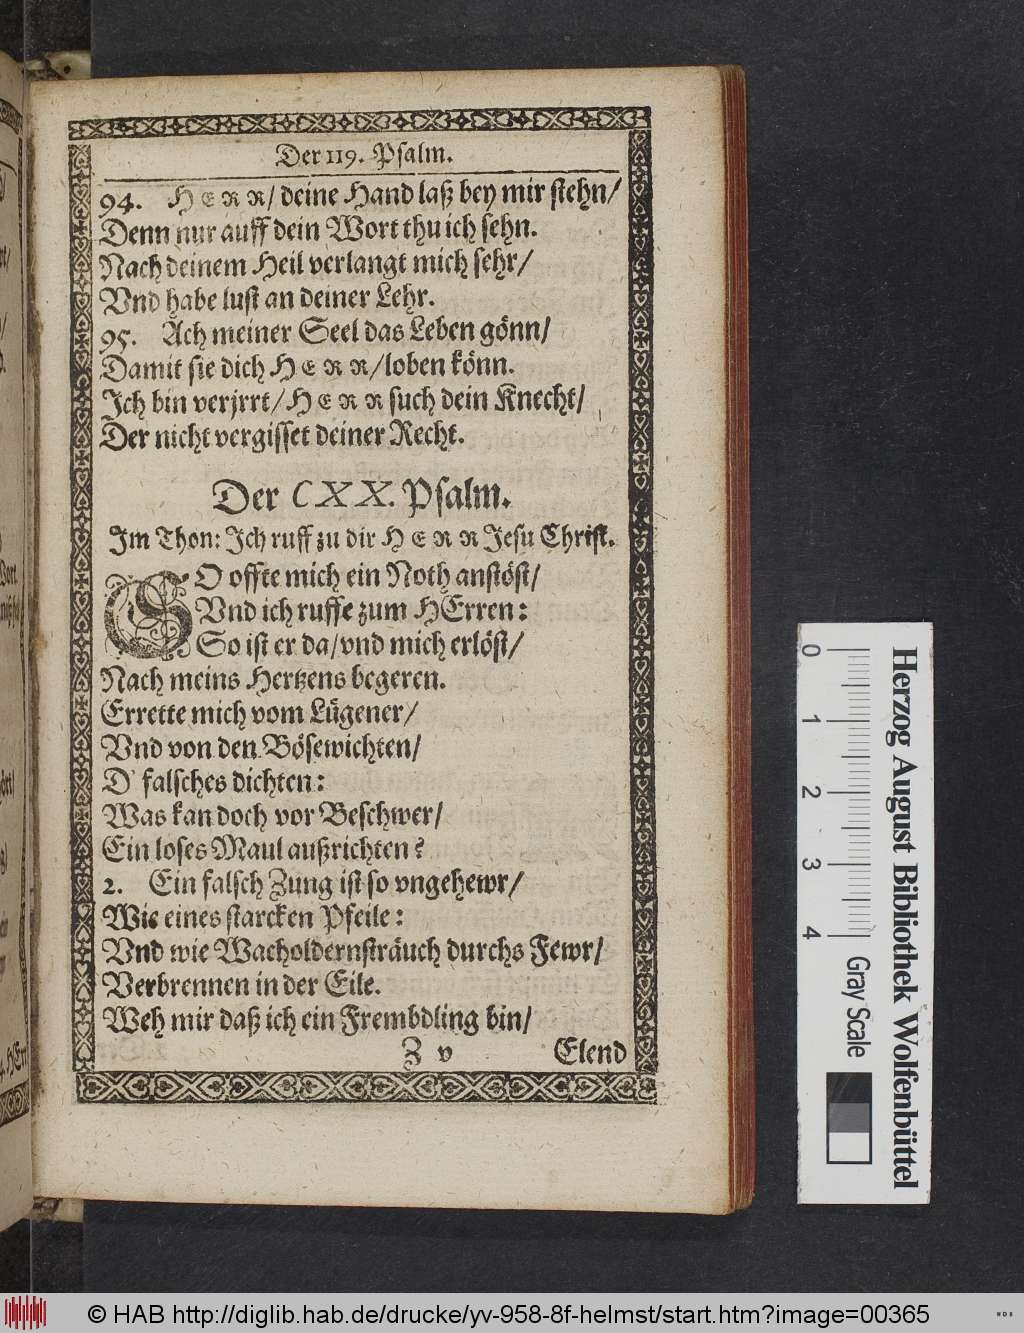 Der 119. Psalm.
94. HERR/ deine Hand laß bey mir stehn/
Denn nur auff dein Wort thu ich sehn.
Nach deinem Heil verlangt mich sehr/
Vnd habe lust an deiner Lehr.
95. Ach meiner Seel das Leben gönn/
Damit sie dich HERR/ loben könn.
Ich bin verjrrt/ HERR such dein Knecht/
Der nicht vergisset deiner Recht.
Der CXX. Psalm.
Im Thon: Ich ruff zu dir HERR Jesu Christ.
SO offte mich ein Noth anstöst/
Vnd ich ruffe zum HErren:
So ist er da/ vnd mich erlöst/
Nach meins Hertzens begeren.
Errette mich vom Lügener/
Vnd von den Bösewichten/
O falsches dichten:
Was kan doch vor Beschwer/
Ein loses Maul außrichten?
2. Ein falsch Zung ist so vngehewr/
Wie eines starcken Pfeile:
Vnd wie Wacholdernsträuch durchs Fewr/
Verbrennen in der Eile.
Weh mir daß ich ein Frembdling bin/
Z v Elend
0 1 2 3 4
Herzog August Bibliothek Wolfenbüttel
Gray Scale
© HAB http://diglib.hab.de/drucke/yv-958-8f-helmst/start.htm?image=00365